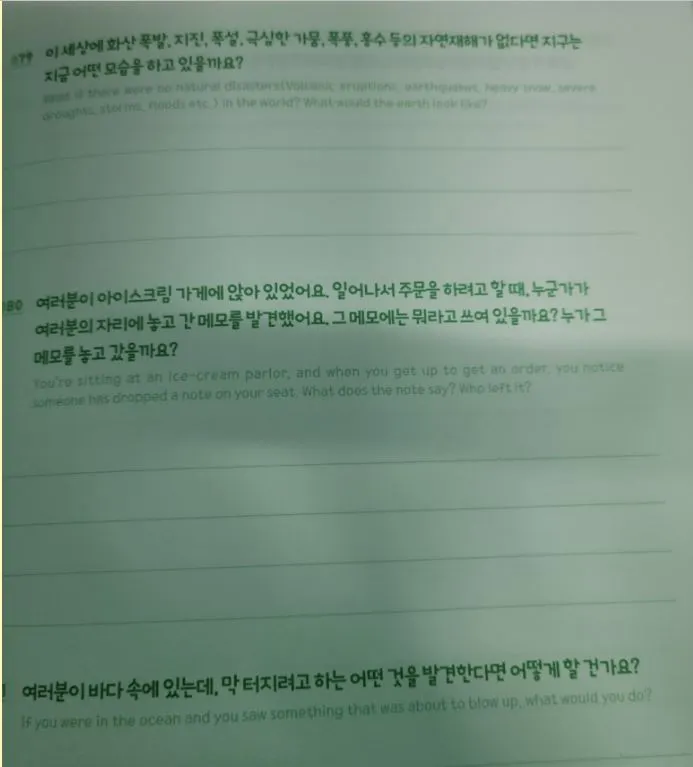 이 세상에 화산 폭발, 지진, 폭설, 극심한 가뭄, 폭풍, 홍수 등의 자연재해가 없다면 지구는
지금 어떤 모습을 하고 있을까요?
if there were no natural disasters(Volcanic eruptions, earthquakes, heavy snow, severe
droughts, storms, floods etc.) in the world? What would the earth look like?
여러분이 아이스크림 가게에 앉아 있었어요. 일어나서 주문을 하려고 할 때, 누군가가
여러분의 자리에 놓고 간 메모를 발견했어요. 그 메모에는 뭐라고 쓰여 있을까요? 누가 그
메모를 놓고 갔을까요?
You're sitting at an ice-cream parlor, and when you get up to get an order, you notice
someone has dropped a note on your seat. What does the note say? Who left it?
여러분이 바다 속에 있는데, 막 터지려고 하는 어떤 것을 발견한다면 어떻게 할 건가요?
If you were in the ocean and you saw something that was about to blow up, what would you do?